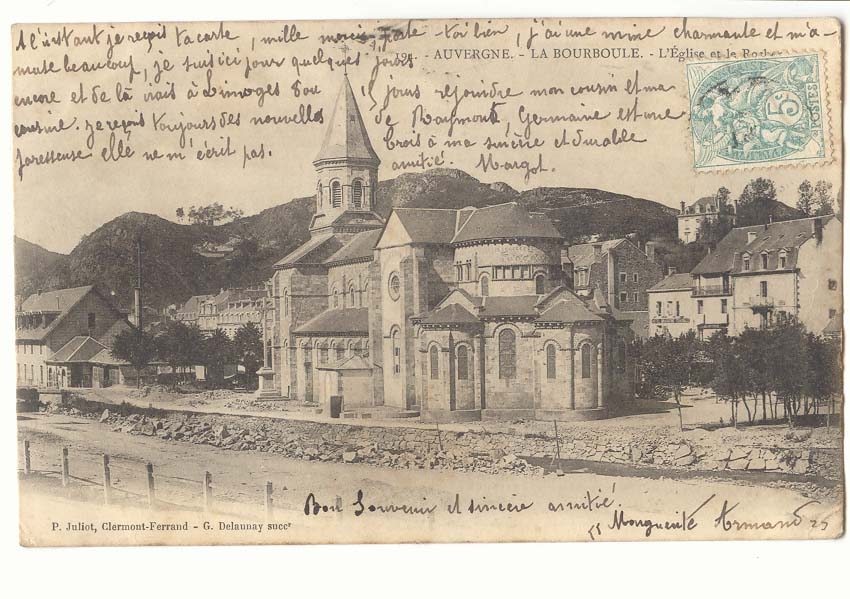 A l'instant je reçois ta carte, mille mercis, porte-toi bien, j'ai une mine charmante et m'a-
muse beaucoup, je suis ici pour quelques jours
encore et de là irais à Limoges 8 ou 15 jours rejoindre mon cousin et ma
cousine. Je reçois toujours des nouvelles de Raymond Germaine est une
paresseuse elle ne m'écrit pas. Crois à ma sincère et durable
amitié. Margot.
AUVERGNE. - LA BOURBOULE. - L'Église et le
5c
POSTES
Bon Souvenir et sincère amitié.
Marguerite Armand
P. Juliot, Clermont-Ferrand - G. Delaunay succr